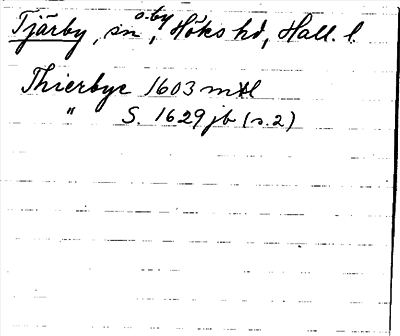 Tjärby, sn o. by, Höks hd, Hall. l.
Thierbye 1603 mtl
" S. 1629 jb (s. 2)